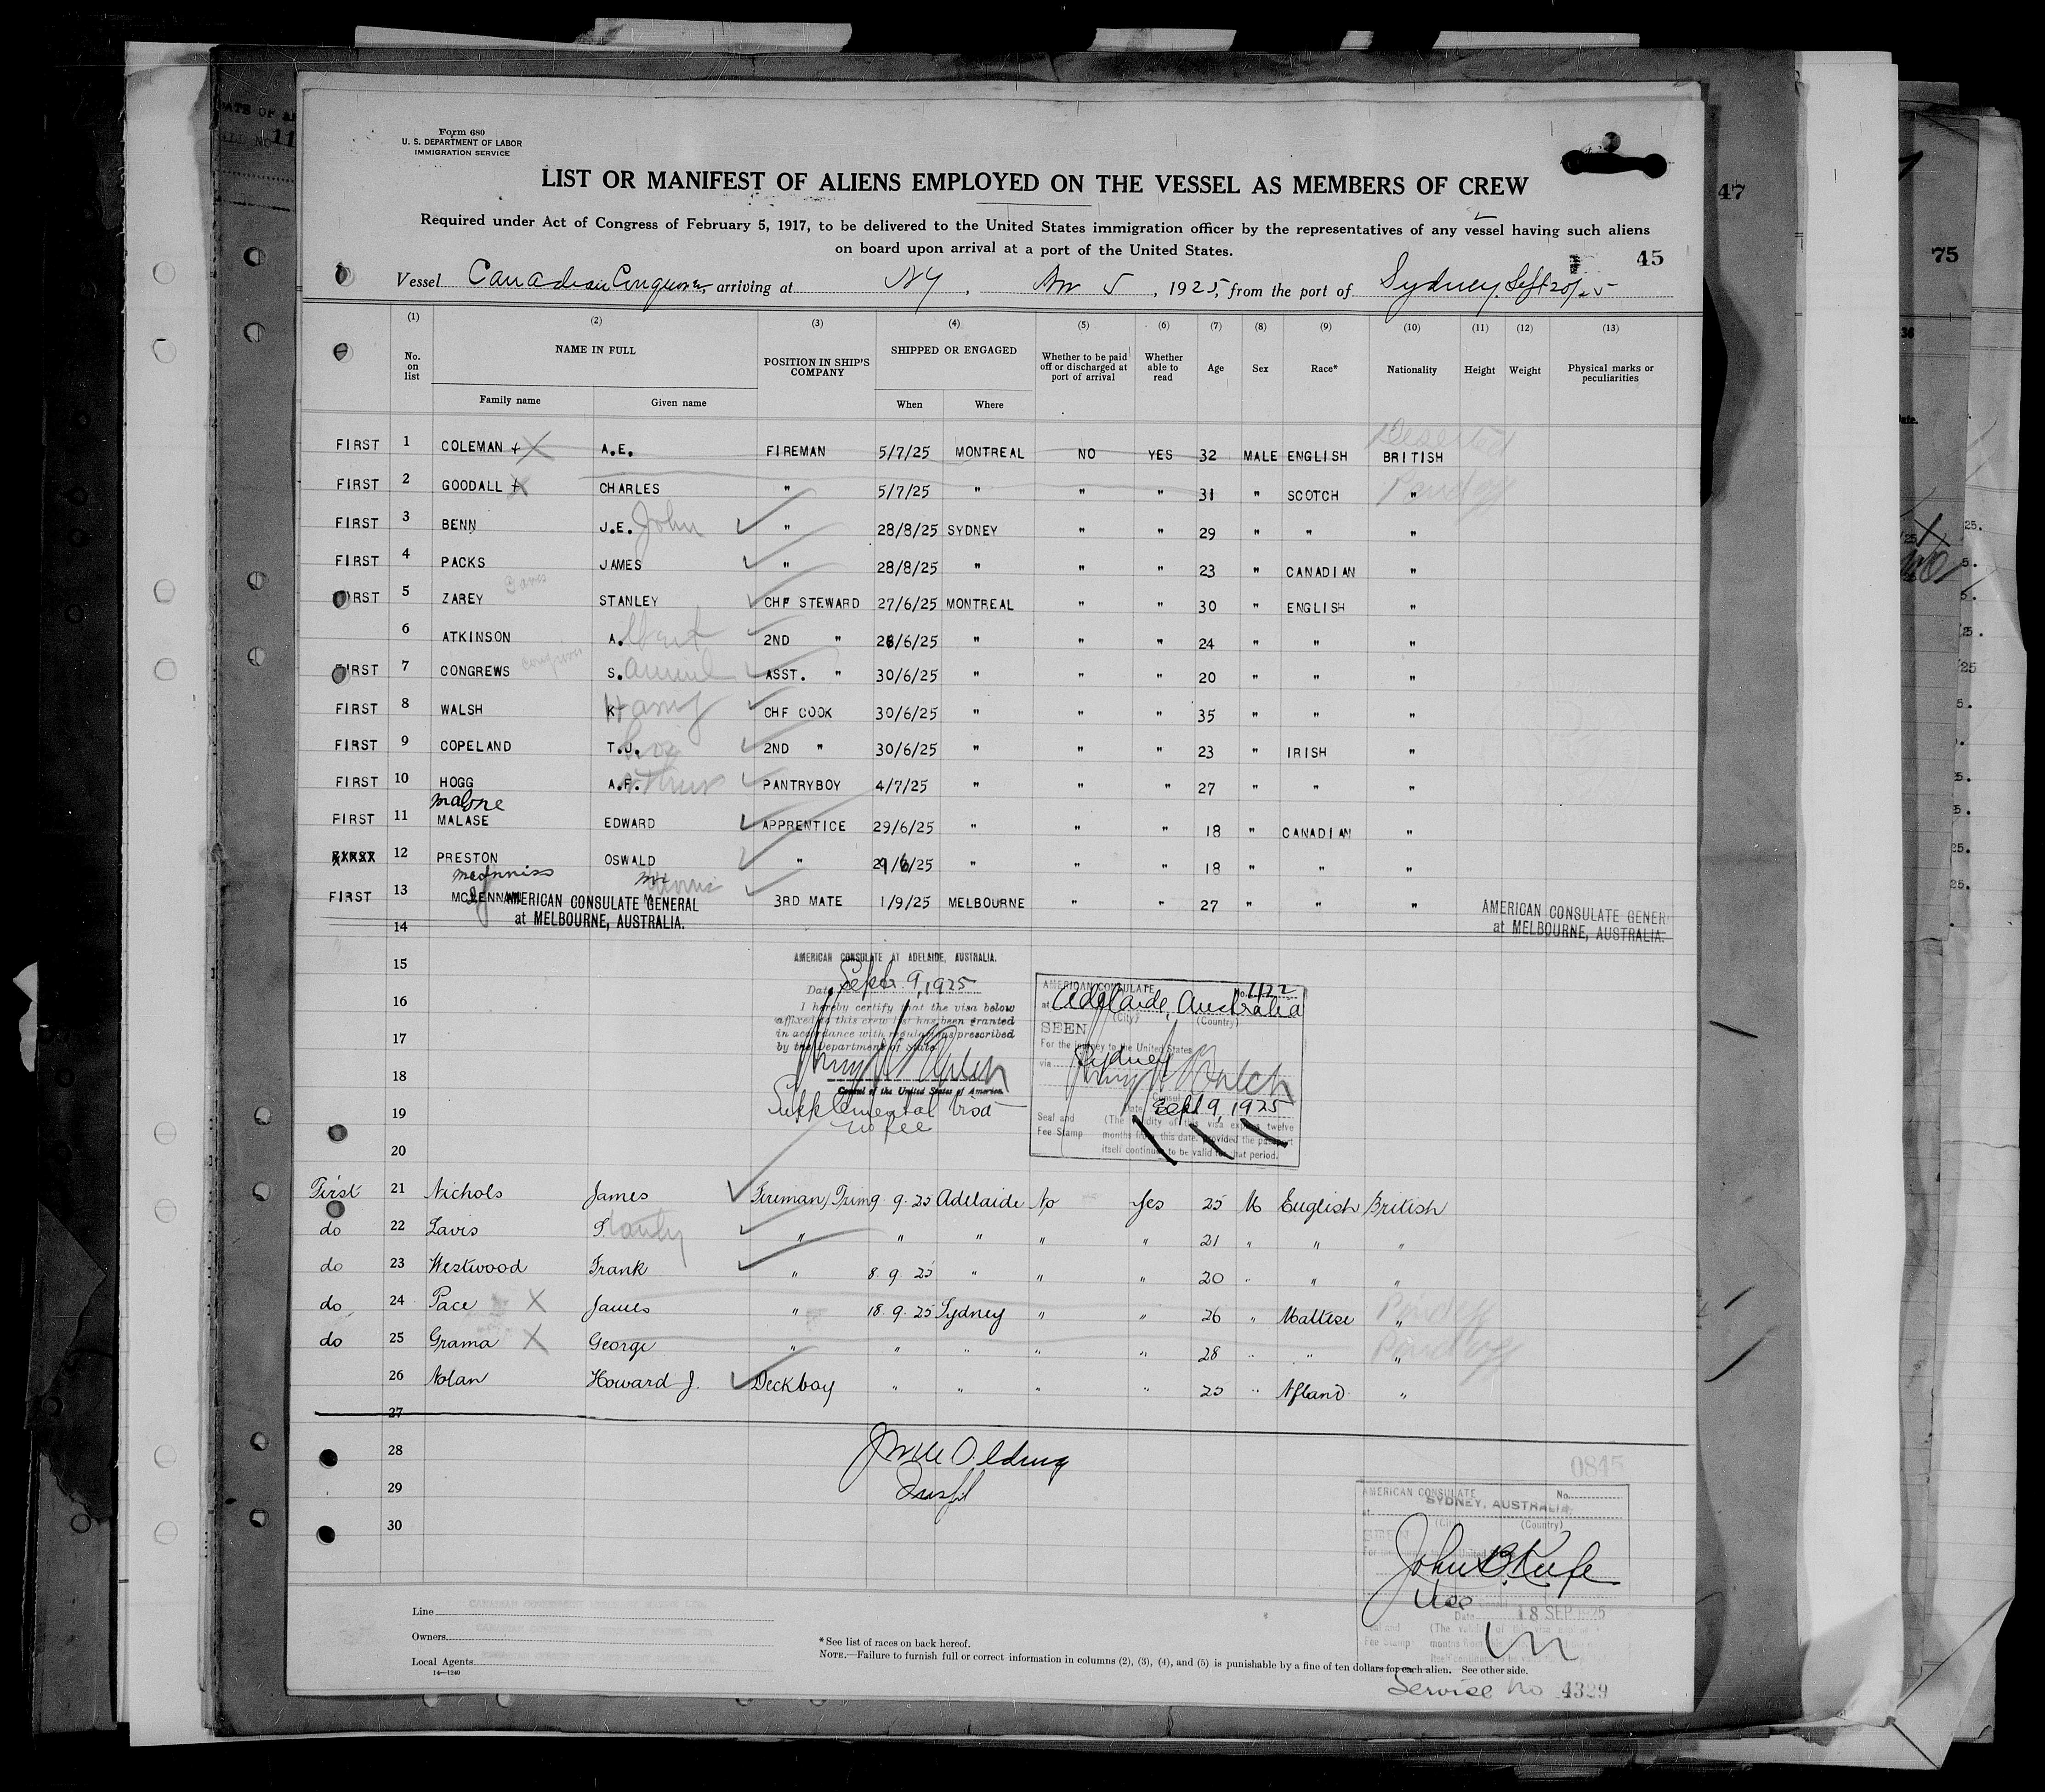 DATE OF
11
Form 680
U. S. DEPARTMENT OF LABOR
IMMIGRATION SERVICE
LIST OR MANIFEST OF ALIENS EMPLOYED ON THE VESSEL AS MEMBERS OF CREW
47
Required under Act of Congress of February 5, 1917, to be delivered to the United States immigration officer by the representatives of any vessel having such aliens
on board upon arrival at a port of the United States.
45
75
Vessel Canadian Conqueror, arriving at NY, 5, 1925, from the port of Sydney, Sept 20/25
(1) (2) (3) (4) (5) (6) (7) (8) (9) (10) (11) (12) (13)
No. on list NAME IN FULL POSITION IN SHIP'S COMPANY SHIPPED OR ENGAGED Whether to be paid off or discharged at port of arrival Whether able to read Age Sex Race* Nationality Height Weight Physical marks or peculiarities
Family name Given name When Where
Deserted
FIRST 1 COLEMAN + X A.E. FIREMAN 5/7/25 MONTREAL NO YES 32 MALE ENGLISH BRITISH
FIRST 2 GOODALL + X CHARLES " 5/7/25 " " " 31 " SCOTCH "
FIRST 3 BENN J.E. John " 28/8/25 SYDNEY " " 29 " " "
FIRST 4 PACKS JAMES " 28/8/25 " " " 23 " CANADIAN "
FIRST 5 ZAREY STANLEY CHF STEWARD 27/6/25 MONTREAL " " 30 " ENGLISH "
6 ATKINSON A. 2ND " 28/6/25 " " " 24 " " "
FIRST 7 CONGREWS S. ASST. " 30/6/25 " " " 20 " " "
FIRST 8 WALSH Harry CHF COOK 30/6/25 " " " 35 " " "
FIRST 9 COPELAND T.J. 2ND " 30/6/25 " " " 23 " IRISH "
FIRST 10 HOGG A.F. PANTRYBOY 4/7/25 " " " 27 " " "
Malone
FIRST 11 MALASE EDWARD APPRENTICE 29/6/25 " " " 18 " CANADIAN "
12 PRESTON OSWALD " 29/6/25 " " " 18 " " "
McInniss
FIRST 13 MCLENNAN M. 3RD MATE 1/9/25 MELBOURNE " " 27 " " "
AMERICAN CONSULATE GENERAL
at MELBOURNE, AUSTRALIA.
AMERICAN CONSULATE GENER
at MELBOURNE, AUSTRALIA.
14
15
16
17
18
19
20
AMERICAN CONSULATE AT ADELAIDE, AUSTRALIA.
Date Septr. 9, 1925
I hereby certify that the visa below
affixed to this crew list has been granted
in accordance with regulations prescribed
by the Department of State.
Consul of the United States of America.
Supplemental Visa
No fee
AMERICAN CONSULATE No. 1122
at Adelaide, Australia
(City) (Country)
SEEN
For the journey to the United States
via Sydney
Consul
Date Sept 9, 1925
Seal and Fee Stamp
(The validity of this visa expires twelve
months from this date, provided the passport
itself continues to be valid for that period.
First 21 Nichols James Fireman/Trim 9.9.25 Adelaide No Yes 25 M English British
do 22 Lavis Stanley " " " " " 21 " " "
do 23 Westwood Frank " 8.9.25 " " " 20 " " "
do 24 Pace X James " 18.9.25 Sydney " " 26 " Maltese "
do 25 Grama X George " " " " " 28 " " "
26 Nolan Howard J. Deckboy " " " " 25 " Nfland "
27
28
29
30
0845
AMERICAN CONSULATE No.
at SYDNEY, AUSTRALIA
(City) (Country)
SEEN
John B. Keefe
Vice
Date 18 SEP 1925
Seal and Fee Stamp
Service No 4329
Line
Owners
Local Agents
14—1240
* See list of races on back hereof.
NOTE.—Failure to furnish full or correct information in columns (2), (3), (4), and (5) is punishable by a fine of ten dollars for each alien. See other side.